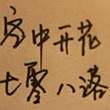 房中开花
七零八落